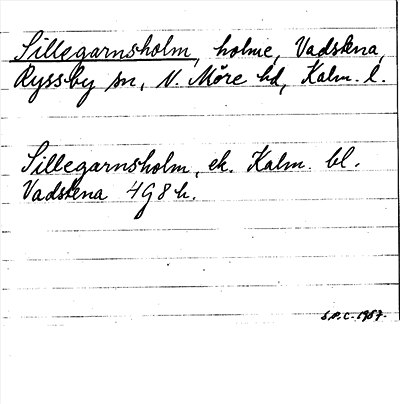 Sillegarnsholm, holme, Vadstena,
Ryssby sn, N. Möre hd, Kalm. l.
Sillegarnsholm, ek. Kalm. bl.
Vadstena 4 g 8 h.
S.P.C. 1957.